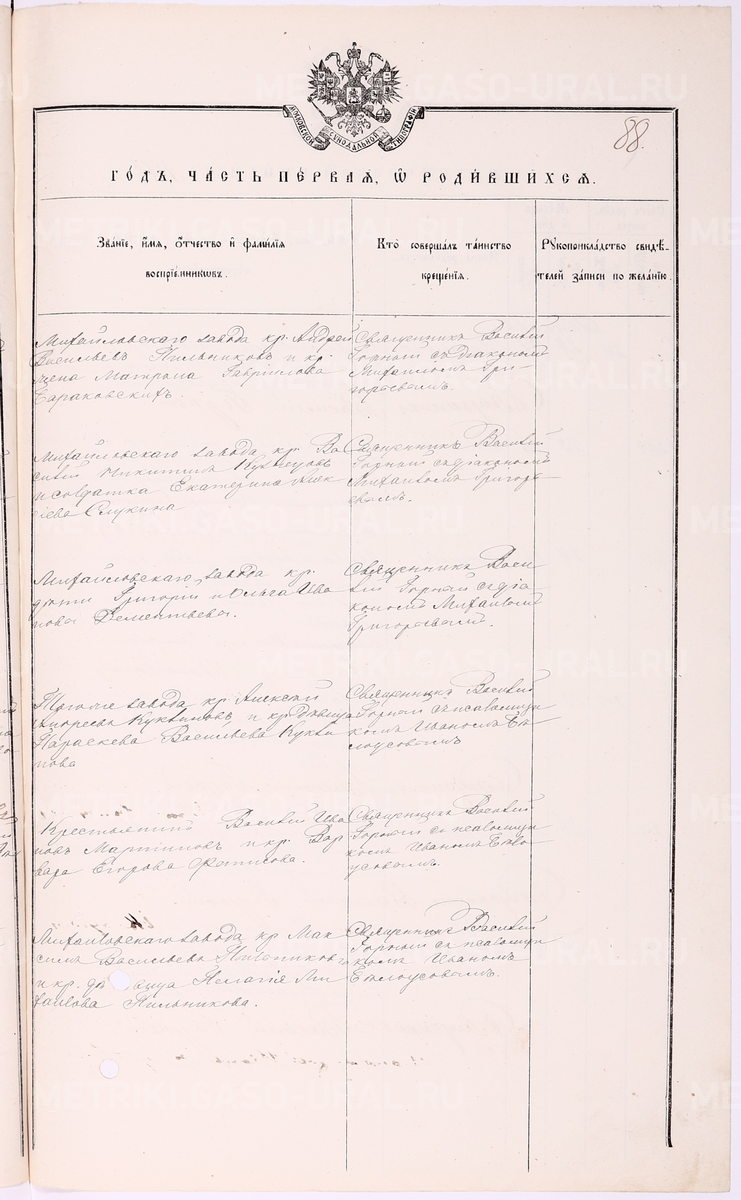 МОСКОВСКОЙ СѴНОДАЛЬНОЙ ТИПОГРАФІИ
88.
ГОДЪ, ЧАСТЬ ПЕРВАЯ, Ѡ РОДИВШИХСЯ.
Званіе, имя, отчество и фамилія
воспріемниковъ.
Кто совершалъ таинство
крещенія.
Рукоприкладство свидѣ-
телей записи по желанію.
Михайловскаго завода кр. Андрей
Васильевъ Пильниковъ и кр.
жена Матрона Гавріилова
Бараковскихъ.
Священникъ Василій
Горный съ діакономъ
Михаиломъ Гри-
горьевымъ.
Михайловскаго завода кр. Ва
силій Никитинъ Кузнецовъ
и солдатка Екатерина Алек
сѣева
Священникъ Василій
Горный съ діакономъ
Михаиломъ Григорь
евымъ.
Михайловскаго завода кр.
дѣти Григорій и Ольга Ива
новы Дементьевы.
Священникъ Васи
лій Горный съ діа
кономъ Михаиломъ
Григорьевымъ.
Тогоже завода кр. Алексѣй
Андреевъ и кр. дѣвица
Параскева Васильева
нова
Священникъ Василій
Горный съ псаломщи
комъ Иваномъ Бѣ
лоусовымъ
Крестьянинъ Василій Ива
новъ Мартиновъ и кр. Вар
вара Егорова
Священникъ Василій
Горный съ псаломщи
комъ Иваномъ Бѣло
усовымъ.
Михайловскаго завода кр. Мак
симъ Васильевъ Пильниковъ
и кр. дѣвица Пелагія Ми
хаилова Пильникова.
Священникъ Василій
Горный съ псаломщи
комъ Иваномъ
Бѣлоусовымъ.
METRIKI.GASO-URAL.RU